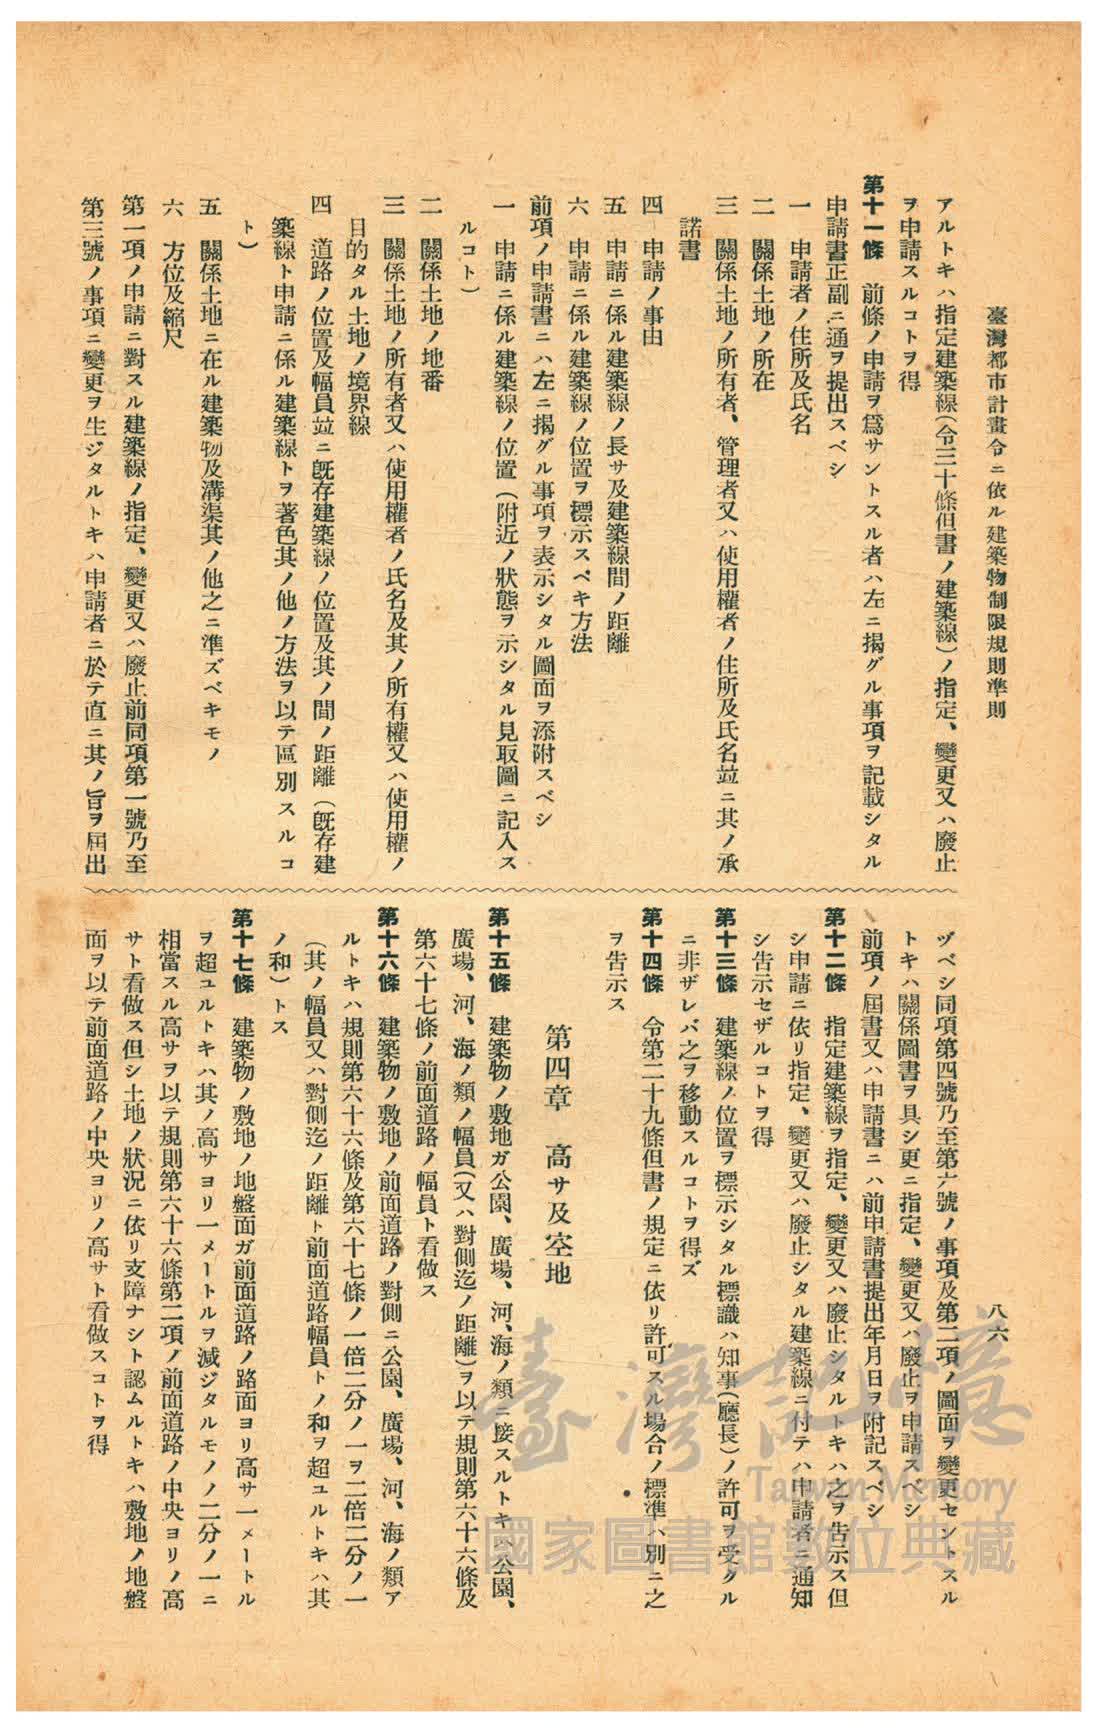 臺灣都市計畫令ニ依ル建築物制限規則準則
八六
アルトキハ指定建築線(令三十條但書ノ建築線)ノ指定、變更又ハ廢止
ヲ申請スルコトヲ得
第十一條　前條ノ申請ヲ爲サントスル者ハ左ニ揭グル事項ヲ記載シタル
申請書正副二通ヲ提出スベシ
一　申請者ノ住所及氏名
二　關係土地ノ所在
三　關係土地ノ所有者、管理者又ハ使用權者ノ住所及氏名竝ニ其ノ承
諾書
四　申請ノ事由
五　申請ニ係ル建築線ノ長サ及建築線間ノ距離
六　申請ニ係ル建築線ノ位置ヲ標示スベキ方法
前項ノ申請書ニハ左ニ揭グル事項ヲ表示シタル圖面ヲ添附スベシ
一　申請ニ係ル建築線ノ位置(附近ノ狀態ヲ示シタル見取圖ニ記入ス
ルコト)
二　關係土地ノ地番
三　關係土地ノ所有者又ハ使用權者ノ氏名及其ノ所有權又ハ使用權ノ
目的タル土地ノ境界線
四　道路ノ位置及幅員竝ニ旣存建築線ノ位置及其ノ間ノ距離(旣存建
築線ト申請ニ係ル建築線トヲ著色其ノ他ノ方法ヲ以テ區別スルコ
ト)
五　關係土地ニ在ル建築物及溝渠其ノ他之ニ準ズベキモノ
六　方位及縮尺
第一項ノ申請ニ對スル建築線ノ指定、變更又ハ廢止前同項第一號乃至
第三號ノ事項ニ變更ヲ生ジタルトキハ申請者ニ於テ直ニ其ノ旨ヲ屆出
ヅベシ同項第四號乃至第六號ノ事項及第二項ノ圖面ヲ變更セントスル
トキハ關係圖書ヲ具シ更ニ指定、變更又ハ廢止ヲ申請スベシ
前項ノ屆書又ハ申請書ニハ前申請書提出年月日ヲ附記スベシ
第十二條　指定建築線ヲ指定、變更又ハ廢止シタルトキハ之ヲ告示ス但
シ申請ニ依リ指定、變更又ハ廢止シタル建築線ニ付テハ申請者ニ通知
シ告示セザルコトヲ得
第十三條　建築線ノ位置ヲ標示シタル標識ハ知事(廳長)ノ許可ヲ受クル
ニ非ザレバ之ヲ移動スルコトヲ得ズ
第十四條　令第二十九條但書ノ規定ニ依リ許可スル場合ノ標準ハ別ニ之
ヲ告示ス
第四章　高サ及空地
第十五條　建築物ノ敷地ガ公園、廣場、河、海ノ類ニ接スルトキハ公園、
廣場、河、海ノ類ノ幅員(又ハ對側迄ノ距離)ヲ以テ規則第六十六條及
第六十七條ノ前面道路ノ幅員ト看做ス
第十六條　建築物ノ敷地ノ前面道路ノ對側ニ公園、廣場、河、海ノ類ア
ルトキハ規則第六十六條及第六十七條ノ一倍二分ノ一ヲ二倍二分ノ一
(其ノ幅員又ハ對側迄ノ距離ト前面道路幅員トノ和ヲ超ユルトキハ其
ノ和)トス
第十七條　建築物ノ敷地ノ地盤面ガ前面道路ノ路面ヨリ高サ一メートル
ヲ超ユルトキハ其ノ高サヨリ一メートルヲ減ジタルモノノ二分ノ一ニ
相當スル高サヲ以テ規則第六十六條第二項ノ前面道路ノ中央ヨリノ高
サト看做ス但シ土地ノ狀況ニ依リ支障ナシト認ムルトキハ敷地ノ地盤
面ヲ以テ前面道路ノ中央ヨリノ高サト看做スコトヲ得
臺灣記憶
Taiwan Memory
國家圖書館數位典藏